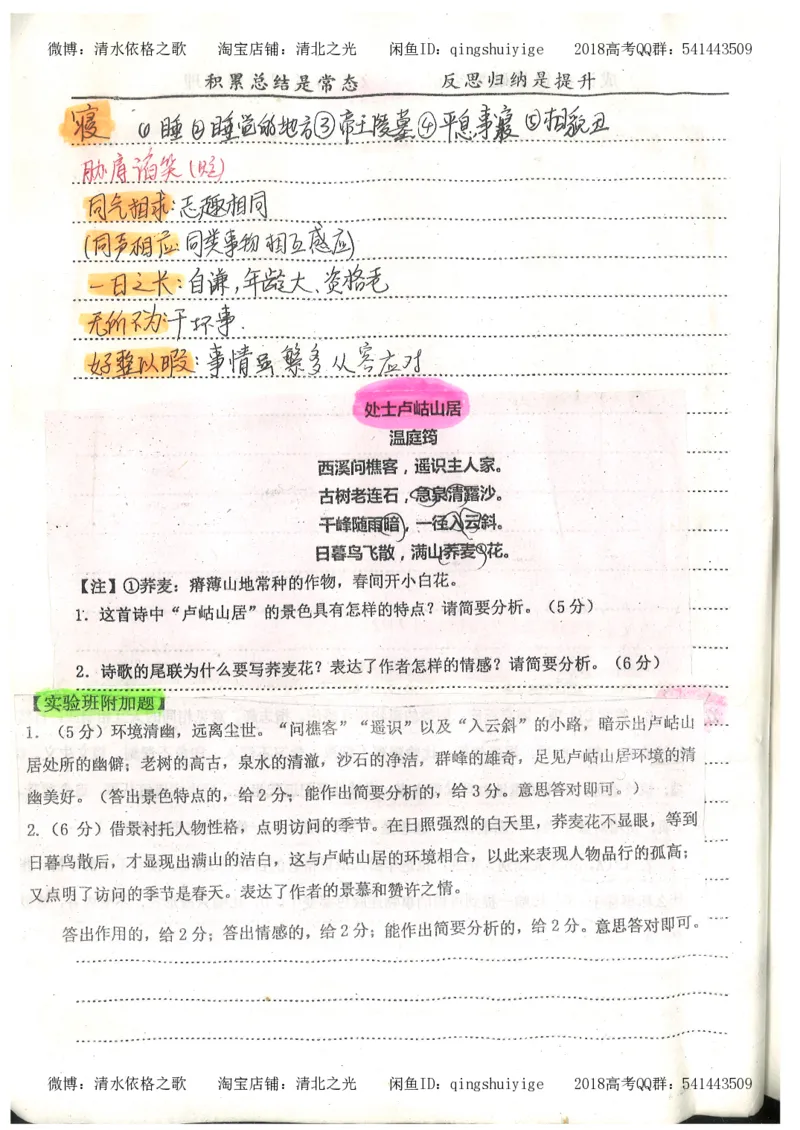 微博：清水依格之歌 淘宝店铺：清北之光 闲鱼ID：qingshuiyige 2018高考QQ群：541443509
积累总结是常态 反思归纳是提升
寝 ①睡②睡觉的地方③帝王陵墓④平息事寝⑤相貌丑
胁肩谄笑(贬)
同气相求：志趣相同
(同声相应：同类事物相互感应)
一日之长：自谦，年龄大、资格老
无所不为：干坏事.
好整以暇：事情虽繁多从容应对
处士卢岵山居
温庭筠
西溪问樵客，遥识主人家。
古树老连石，急泉清露沙。
千峰随雨暗，一径入云斜。
日暮鸟飞散，满山荞麦①花。
【注】①荞麦：瘠薄山地常种的作物，春间开小白花。
1．这首诗中“卢岵山居”的景色具有怎样的特点？请简要分析。（5分）
2．诗歌的尾联为什么要写荞麦花？表达了作者怎样的情感？请简要分析。（6分）
【实验班附加题】
1．（5分）环境清幽，远离尘世。“问樵客”“遥识”以及“入云斜”的小路，暗示出卢岵山
居处所的幽僻；老树的高古，泉水的清澈，沙石的净洁，群峰的雄奇，足见卢岵山居环境的清
幽美好。（答出景色特点的，给2分；能作出简要分析的，给3分。意思答对即可。）
2．（6 分）借景衬托人物性格，点明访问的季节。在日照强烈的白天里，荞麦花不显眼，等到
日暮鸟散后，才显现出满山的洁白，这与卢岵山居的环境相合，以此来表现人物品行的孤高；
又点明了访问的季节是春天。表达了作者的景慕和赞许之情。
答出作用的，给2分；答出情感的，给2分；能作出简要分析的，给2分。意思答对即可。
微博：清水依格之歌 淘宝店铺：清北之光 闲鱼ID：qingshuiyige 2018高考QQ群：541443509